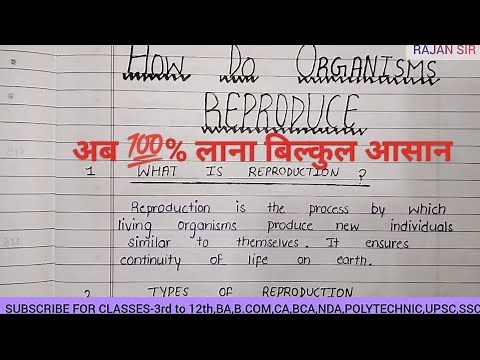 RAJAN SIR
HOW DO ORGANISMS
REPRODUCE
अब 💯% लाना बिल्कुल आसान
1 WHAT IS REPRODUCTION ?
Reproduction is the process by which
living organisms produce new individuals
similar to themselves. It ensures
continuity of life on earth.
2 TYPES OF REPRODUCTION
SUBSCRIBE FOR CLASSES-3rd to 12th,BA,B.COM,CA,BCA,NDA,POLYTECHNIC,UPSC,SSC